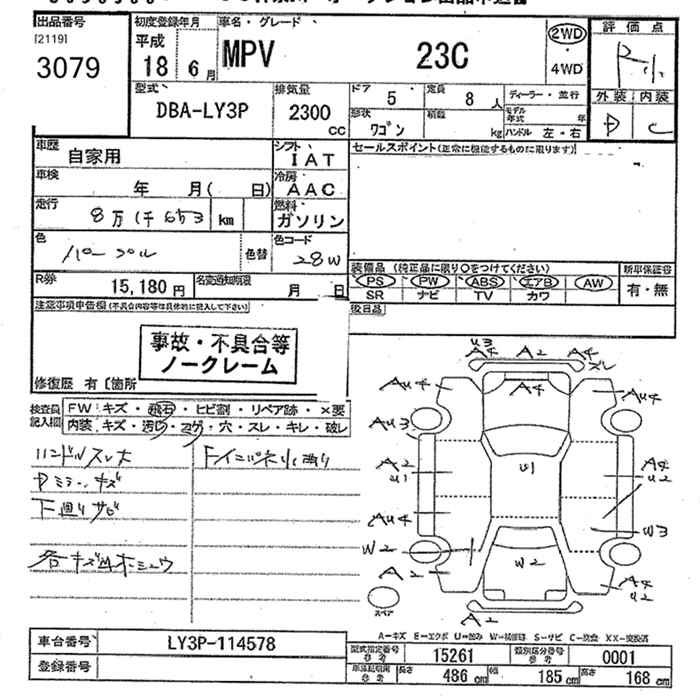 出品番号
[2119]
3079
初度登録年月
平成
18 6月
車名・グレード
MPV 23C
2WD
・
4WD
評価点
外装 内装
D C
型式
DBA-LY3P
排気量
2300
CC
ドア 5
定員 8人
ディーラー・並行
形状 ワゴン
積載 kg
モデル年式 年
ハンドル 左・右
車歴 自家用
シフト IAT
車検 年 月( 日)
冷房 AAC
走行 8万1千653 km
燃料 ガソリン
色 パープル
色替
色コード 28W
セールスポイント(正常に機能するものに限ります)
R券 15,180円
名変通知期限 月 日
装備品 (純正品に限り○をつけてください)
PS PW ABS エアB AW
SR ナビ TV カワ
新車保証書
有・無
注意事項申告欄(不具合内容等は具体的に記入して下さい)
後日品
事故・不具合等
ノークレーム
修復歴 有 〔箇所
検査員
記入欄
FW キズ・飛石・ヒビ割・リペア跡・×要
内装 キズ・汚レ・コゲ・穴・スレ・キレ・破レ
ハンドルスレ大
Dミラーキズ
下廻りサビ
各キズ凹ホシュウ
U3
A4 A2 A4
ズレ
AU4 A4 AU4
AU3 A4
A2 U1 U1 A4 U2
AU4 W3
W2 W2
A2 A4 U2
A2
スペア
A-キズ E-エクボ U-凹み W-補修跡 S-サビ C-腐食 XX-交換済
車台番号 LY3P-114578
登録番号
型式指定番号
参考
15261
類別区分番号
参考
0001
車検証記載
参考
長さ 486cm 幅 185cm 高さ 168cm